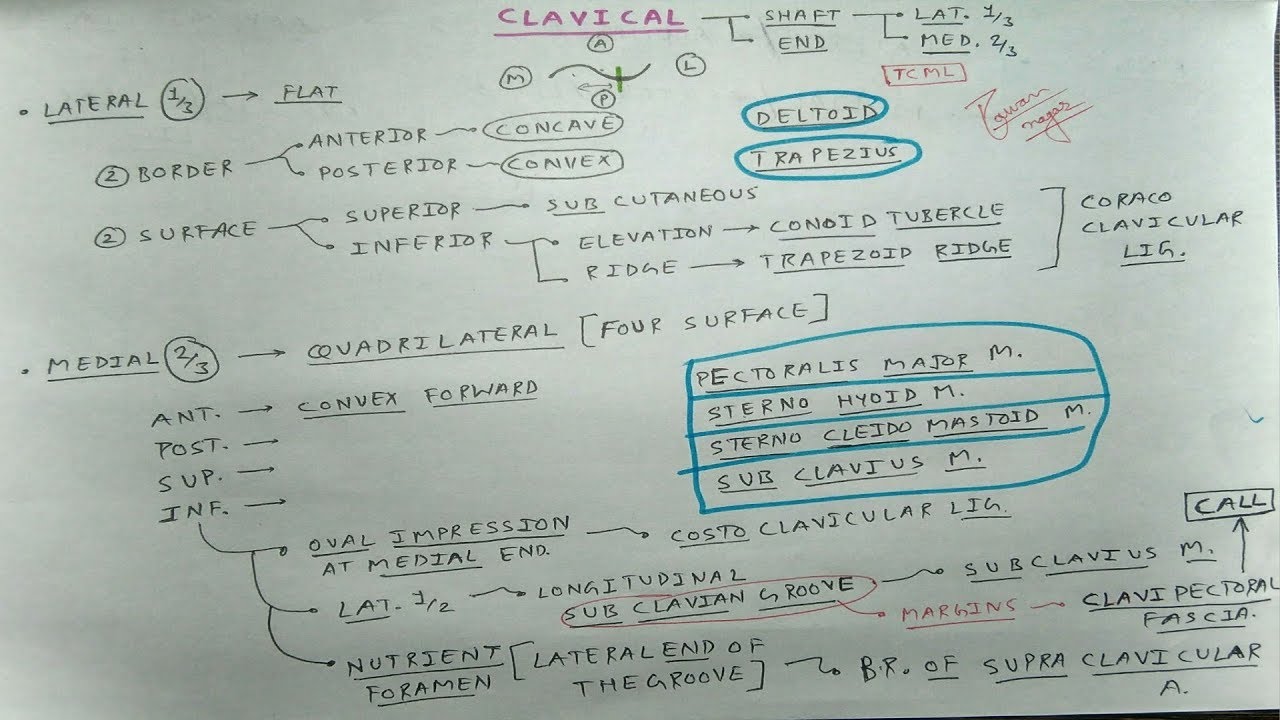 CLAVICAL — SHAFT — LAT. 1/3
END MED. 2/3
A
M L
P
TCML
Pawan nagar
• LATERAL 1/3 → FLAT
② BORDER ANTERIOR — CONCAVE DELTOID
POSTERIOR — CONVEX TRAPEZIUS
② SURFACE SUPERIOR — SUB CUTANEOUS
INFERIOR ELEVATION → CONOID TUBERCLE
RIDGE → TRAPEZOID RIDGE
CORACO
CLAVICULAR
LIG.
• MEDIAL 2/3 → QUADRILATERAL [FOUR SURFACE]
ANT. → CONVEX FORWARD
POST. →
SUP. →
INF. →
PECTORALIS MAJOR M.
STERNO HYOID M.
STERNO CLEIDO MASTOID M.
SUB CLAVIUS M.
• OVAL IMPRESSION — COSTO CLAVICULAR LIG.
AT MEDIAL END.
• LAT. 1/2 → LONGITUDINAL
SUB CLAVIAN GROOVE — SUBCLAVIUS M.
MARGINS — CLAVIPECTORAL
FASCIA.
CALL
• NUTRIENT [LATERAL END OF
FORAMEN THE GROOVE] B.R. OF SUPRA CLAVICULAR
A.